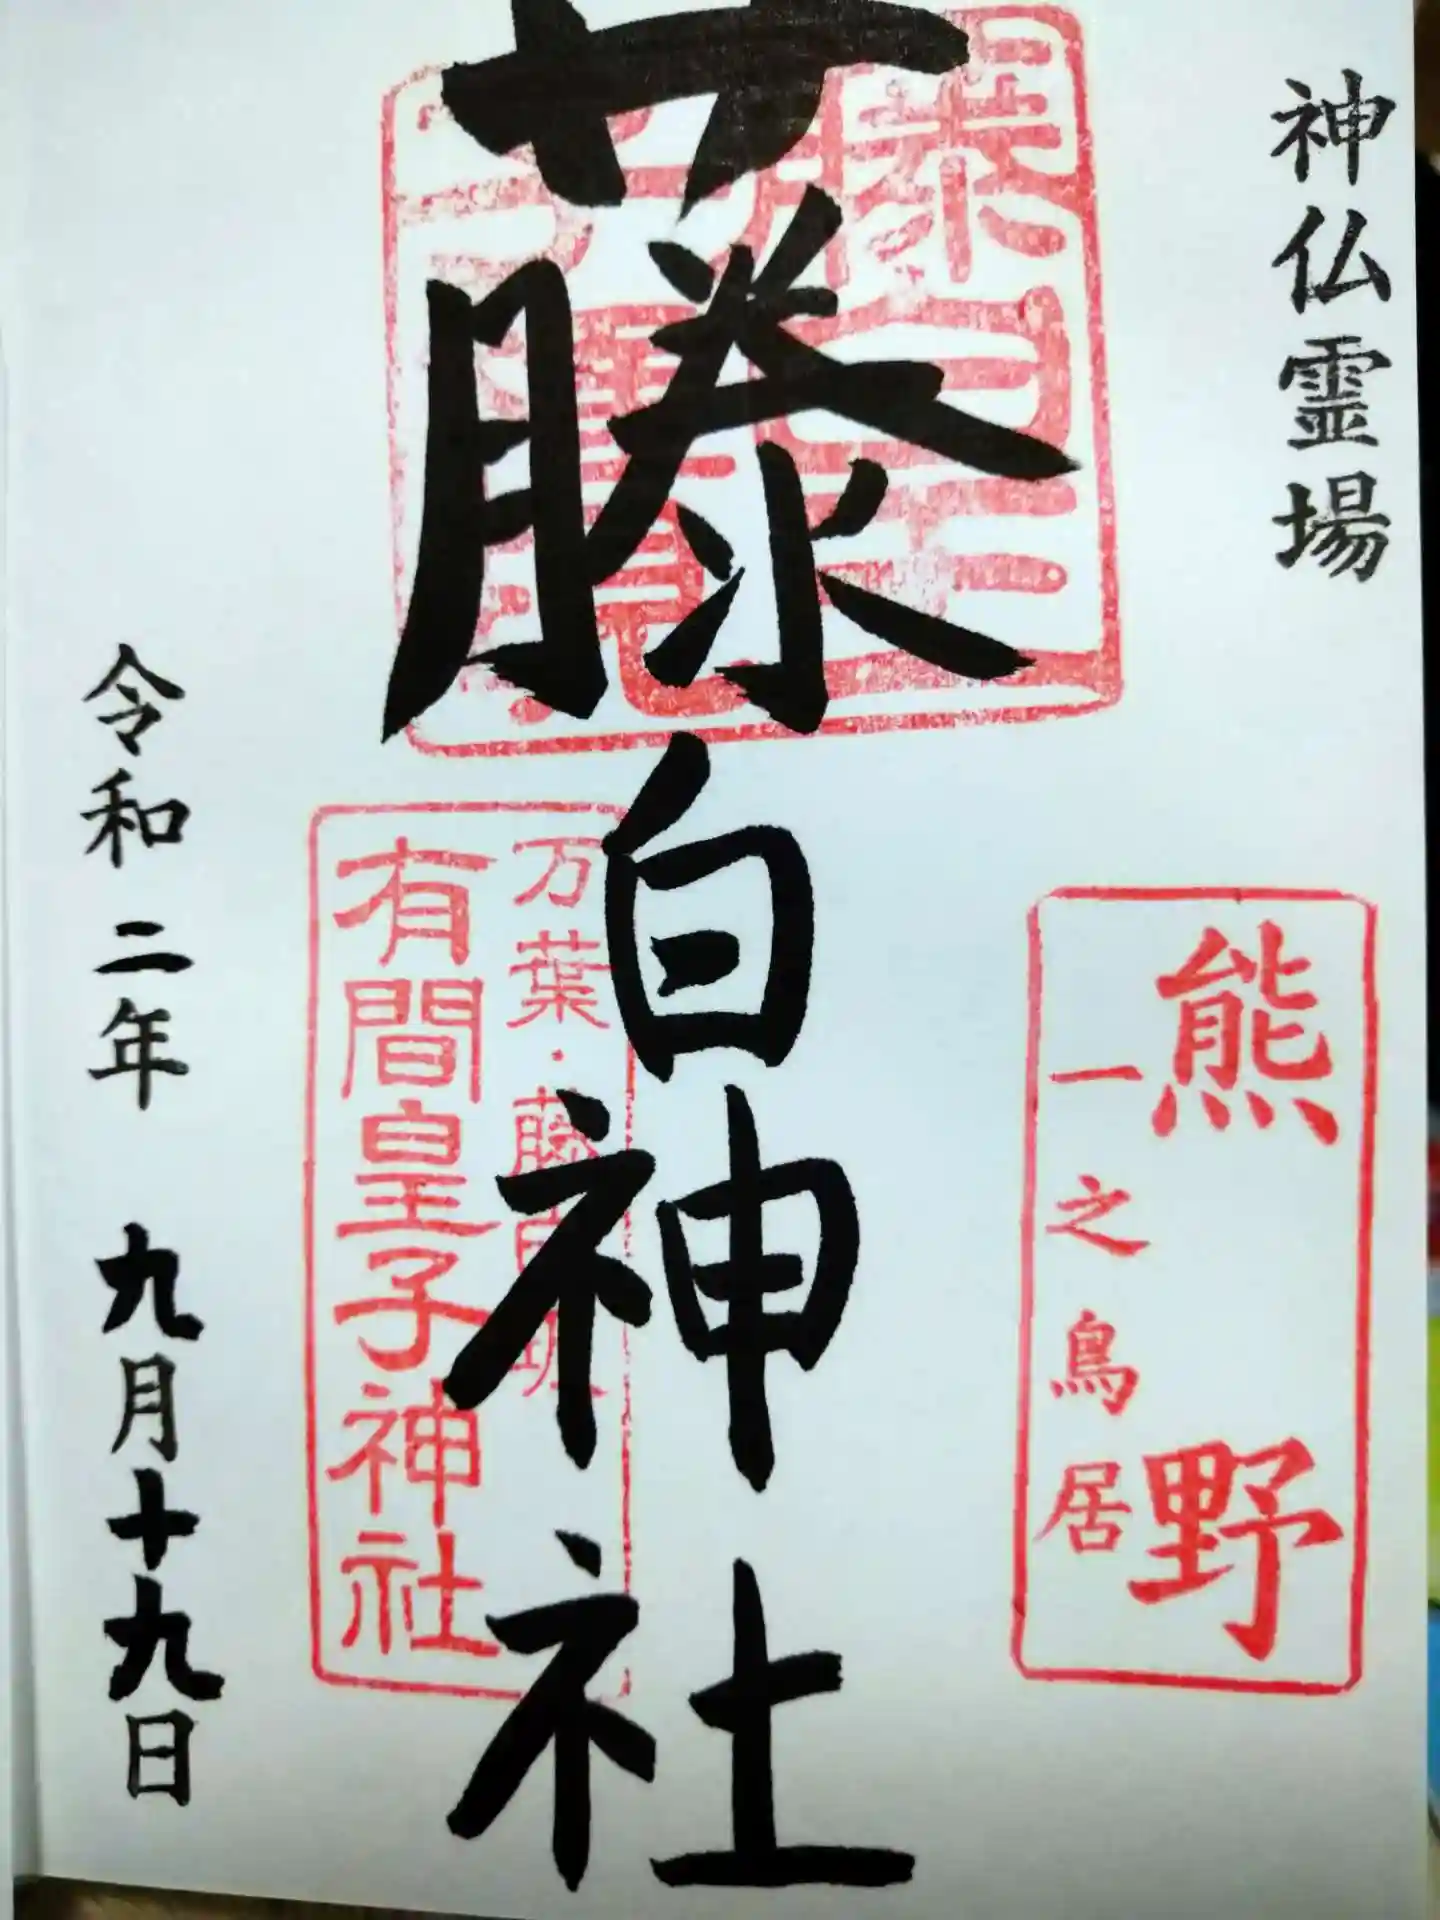 神仏霊場
熊野
一之鳥居
藤白神社
万葉・藤白坂
有間皇子神社
令和二年 九月十九日